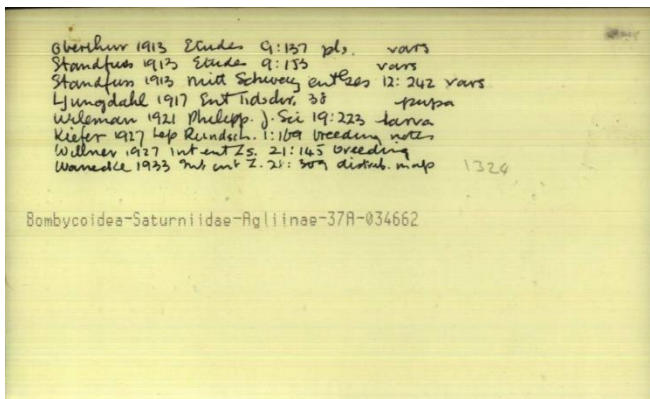 Oberthur 1913 Etudes 9:137 pls. vars
Standfuss 1913 Etudes 9:153 vars
Standfuss 1913 Mitt Schweiz ent Ges 12: 242 vars
Ljungdahl 1917 Ent Tidskr. 38 pupa
Wileman 1921 Philipp. J. Sci 19:223 larva
Kiefer 1927 Lep Rundsch. 1:169 breeding notes
Willner 1927 Int ent Zs. 21:145 breeding
Warnecke 1933 Int ent Z. 21: 309 distrib. map 1324
Bombycoidea-Saturniidae-Agliinae-37A-034662